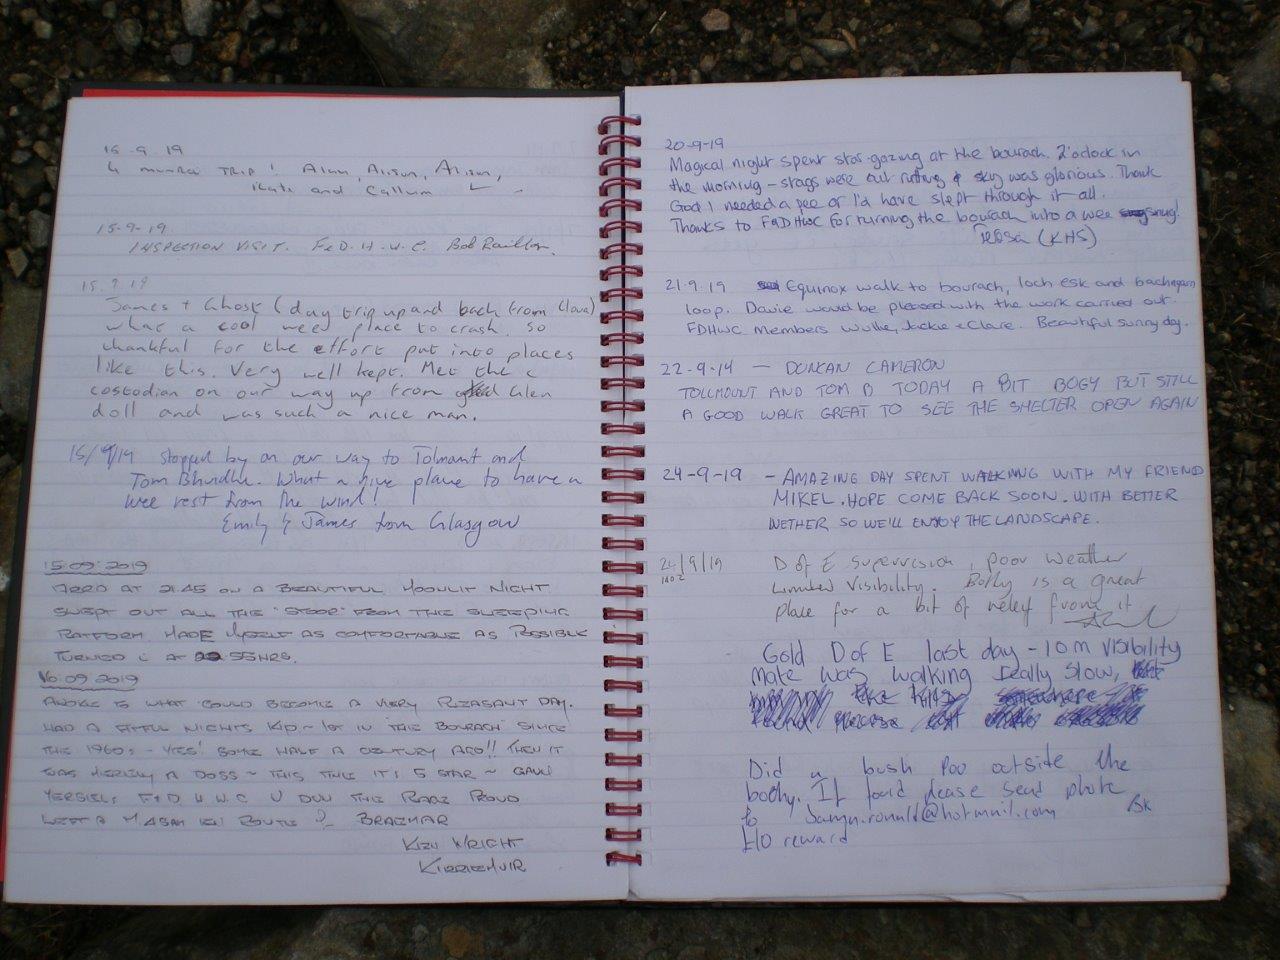 15.9.19
4 munro TRIP! Alan, Alison, Alison,
Kate and Callum
15-9-19.
INSPECTION VISIT. F&D.H.W.C. Bob
15.9.19
James + Ghost (day trip up and back from Clova)
what a cool weey place to crash. so
thankful for the effort put into places
like this. Very well kept. Met the c
costodian on our way up from Glen
doll and was such a nice man.
15/9/19 Stopped by on our way to Tolmant and
Tom Bhuidhe. What a nice place to have a
wee rest from the wind!
Emily & James from Glasgow
15.09.2019
ARRD AT 21.45 ON A BEAUTIFUL MOONLIT NIGHT
SWEPT OUT ALL THE 'STOOR' FROM THE SLEEPING
PLATFORM. MADE MYSELF AS COMFORTABLE AS POSSIBLE
TURNED AT 55HRS.
16.09.2019
AWOKE TO WHAT COULD BECOME A VERY PLEASANT DAY.
HAD A FITFUL NIGHTS KIP ~ 1ST IN 'THE BOURACH' SINCE
THE 1960s ~ YES! SOME HALF A CENTURY AGO!! THEN IT
WAS MERELY A DOSS ~ THIS TIME IT'S 5 STAR ~ GAUN
YERSIEL, F&D H W C U DUN THIS PLACE PROUD
LEFT A EN ROUTE BRAEMAR
WRIGHT
KIRRIEMUIR
20-9-19
Magical night spent star-gazing at the bourach. 2'oclock in
the morning - stags were out rutting & sky was glorious. Thank
God I needed a pee or I'd have slept through it all.
Thanks to F&DHWC for turning the bourach into a wee snug!
(KHS)
21.9.19 Equinox walk to bourach, loch esk and bachnagairn
loop. Davie would be pleased with the work carried out.
FDHWC members Wullie, Jackie & Clare. Beautiful sunny day.
22-9-19 — DUNCAN CAMERON
TOLLMOUNT AND TOM B TODAY A BIT BOGY BUT STILL
A GOOD WALK GREAT TO SEE THE SHELTER OPEN AGAIN
24-9-19 - AMAZING DAY SPENT WALKING WITH MY FRIEND
MIKEL. HOPE COME BACK SOON. WITH BETTER
WETHER SO WE'LL ENJOY THE LANDSCAPE.
24/9/19 D of E supervision, poor weather
1402 limited visibility. Bothy is a great
place for a bit of relief from it
Gold D of E last day - 10m visibility
Mate was walking really slow,
Did a bush poo outside the
bothy. If found please send photo
to
£10 reward